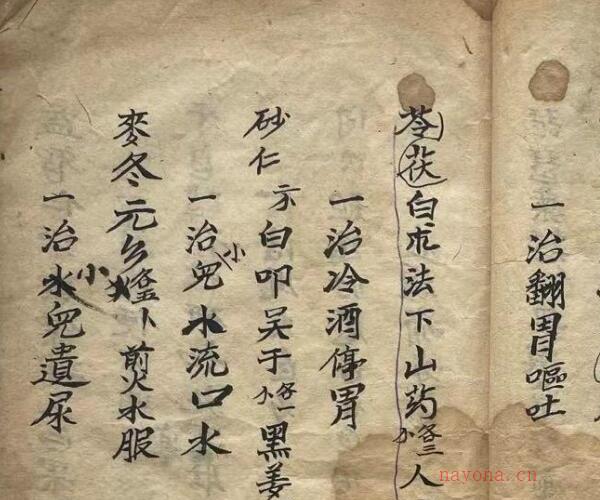 一治翻胃嘔吐
苓茯白朮法下山药各三人
一治冷酒停胃
砂仁示白叩吴于各一黑姜
一治兒小水流口水
麥冬元乡各煎火水服
一治小兒遺尿
nayona.cn